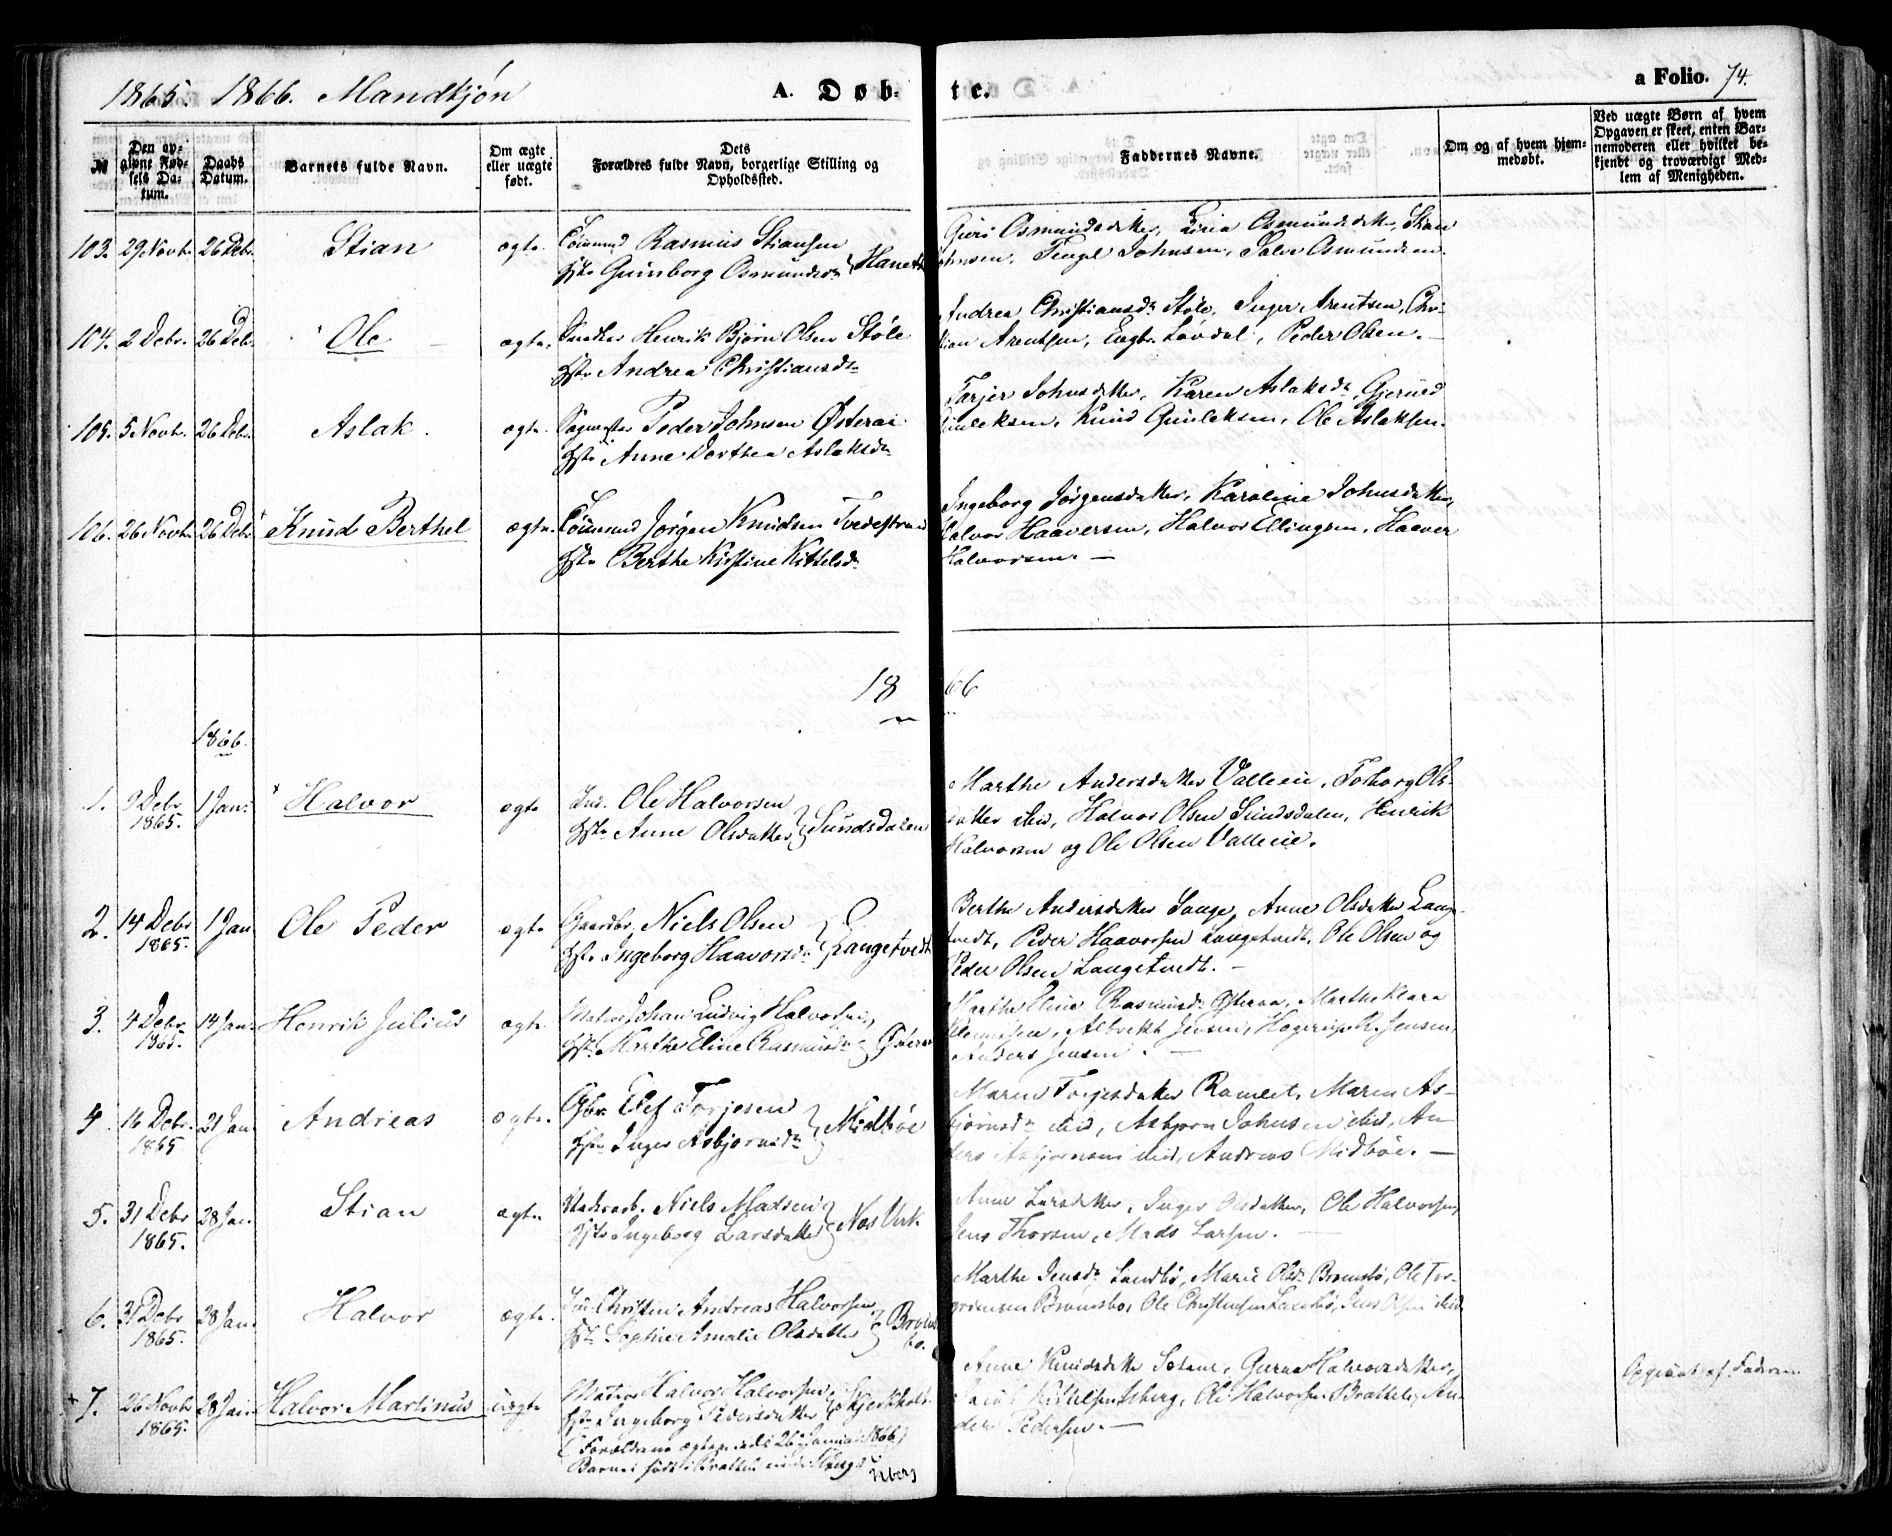 1865. 1866. Mandkjøn
A. Døb-
te.
a Folio. 74.
№
Den op-
givne Fød-
sels Da-
tum.
Daabs
Datum.
Barnets fulde Navn.
Om ægte
eller uægte
født.
Dets
Forældres fulde Navn, borgerlige Stilling og
Opholdssted.
Faddernes Navne.
Om og af hvem hjem-
medøbt.
Ved uægte Børn af hvem
Opgaven er skeet, enten Bar-
nemoderen eller hvilket be-
kjendt og troværdigt Med-
lem af Menigheden.
103. 29 Novbr. 26 Debr. Stian ægte. Rasmus Stiansen
Hst. Gunborg Osmundsd.
Osmundsdatter, Osmundsdatter, Stian
Johnsen, Johnsen, Osmundsen.
104. 2 Debr. 26 Debr. Ole ægte. Henrik Bjørn Olsen Støle
Hst. Andrea Christiansdr.
Andrea Christiansdr. Støle, Inger Arentsen, Chri-
stian Arentsen, Engbr. Løvdal, Peder Olsen.
105. 5 Novbr. 26 Debr. Aslak. ægte. Peder Johnsen Østeraa
Hst. Anne Dorthea Aslaksdr.
Tarjer Johnsdatter, Karen Aslaksdr. Gjerued
Gunleksen, Knud Gunleksen, Ole Aslaksen.
106. 26 Novbr. 26 Debr. Knud Berthel ægte. Jørgen Knudsen Tvedestrand
Hst. Berthe Kirstine Kittelsdr.
Ingeborg Jørgensdatter, Karoline Johnsdatter,
Halvor Haaversen, Halvor Ellingsen, Haaver
Halvorsen. —
1866
1866.
1. 9 Debr. 1865. 1 Jan. Halvor ægte Ind. Ole Halvorsen
Hst. Anne Olsdatter Sundsdalen
Marthe Andersdatter Valleeie, Torborg Ols-
datter ibid, Halvor Olsen Sundsdalen, Henrik
Halvorsen og Ole Olsen Valleeie.
2. 14 Debr 1865. 1 Jan Ole Peder ægte Gaardbr. Niels Olsen
Hst. Ingeborg Haavorsdr. Langetvedt
Berthe Andersdatter Lange, Anne Olsdatter Lange-
tvedt, Peder Haavorsen Langetvedt, Ole Olsen og
Peder Olsen Langetvedt. —
3. 4 Debr. 1865. 14 Jan. Henrik Julius ægte. Matros Johan Ludvig Halvorsen,
Hst. Marthe Eline Rasmusdr. Østeraa
Marthe Eline Rasmusdr. Østeraa, Marthe Klara
Albrekt Jensen, Hagerup K. Jensen,
Anders Jensen. —
4. 16 Debr. 1865 21 Jan. Andreas ægte. Gbr. Elef Torjesen
Hst. Inger Asbjørnsdr. Midbøe
Maren Torjesdatter Ramleet, Maren As-
bjørnsdr. ibid, Asbjørn Johnsen ibid, An-
ders Asbjørnsen ibid, Andreas Midbøe. —
5. 31 Debr 1865. 28 Jan. Stian ægte. Niels Madsen
Hst. Ingeborg Larsdatter Næs Verk
Anne Larsdatter, Inger Olsdatter, Ole Halvorsen,
Jens Thorsen, Mads Larsen. —
6. 31 Debr 1865. 28 Jan. Halvor ægte. Ind. Christen Andreas Halvorsen
Hst. Sophie Amalie Olsdatter Brøms-
bo.
Marthe Jensdr. Landbø, Marie Olsdr. Brømsbø, Ole Tor-
grimsen Brømsbo, Ole Christensen Landbø, Jens Olsen ibid.
+ 7. 26 Novbr 1865. 28 Jan. Halvor Martinus uægte Matros Halvor Halvorsen
Hst. Ingeborg Pedersdatter
(Forældrene ægteviede 26 Januar 1866)
Barnet født i Brattele
Anne Knudsdatter Gurna Halvorsdatter,
Kittelsen Asberg, Ole Halvorsen Brattele, An-
ders Pedersen. —
Opgivet af Faderen